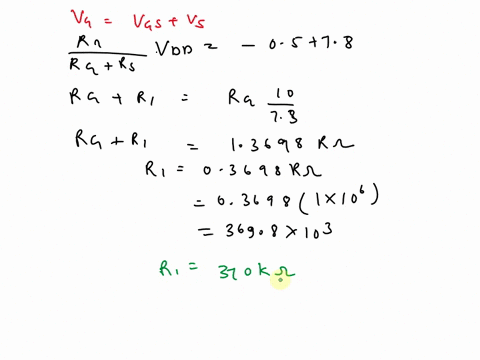 VG = VGS + VS
Rn / RG + Rs VDD = - 0.5 + 7.8
RG + R1 = RG 10 / 7.3
RG + R1 = 1.3698 RΩ
R1 = 0.3698 RΩ
= 0.3698 (1 × 10^6)
= 369.8 × 10^3
R1 = 370 kΩ